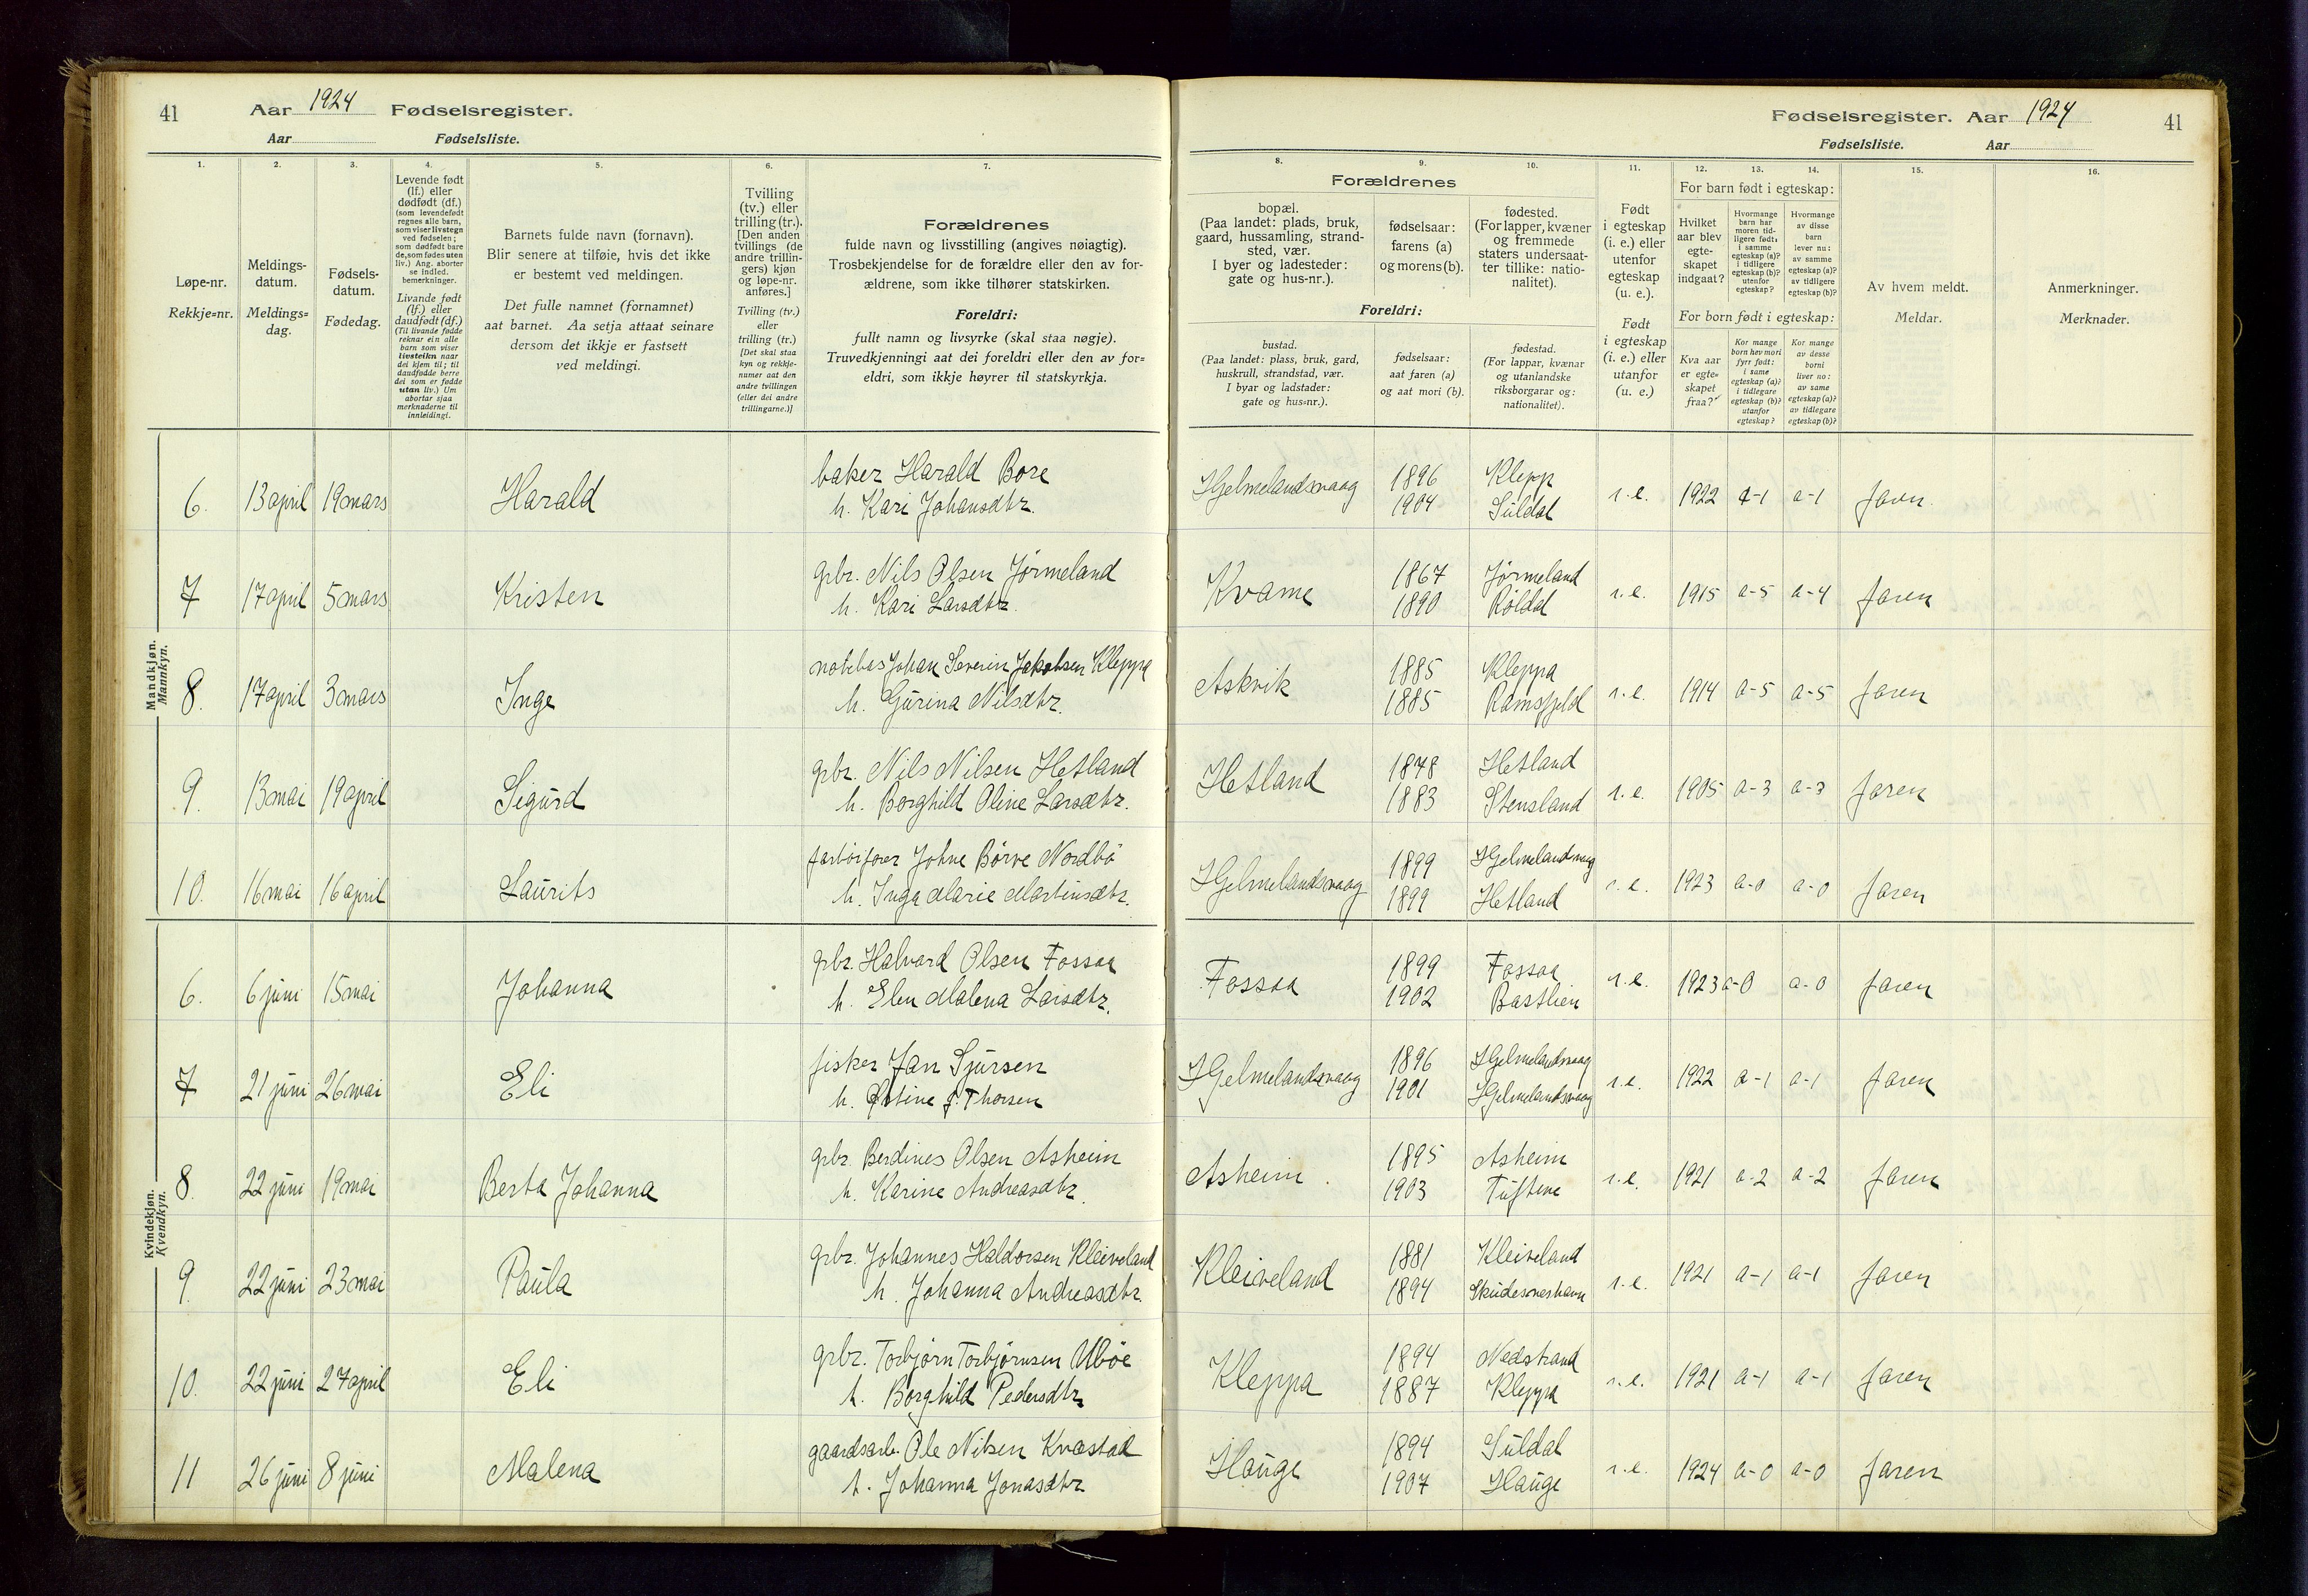 41 Aar 1924 Fødselsregister.
Aar Fødselsliste.
Fødselsregister. Aar 1924 41
Fødselsliste. Aar
1. 2. 3. 4. 5. 6. 7.
Løpe-nr.
Rekkje=nr.
Meldings-
datum.
Meldings=
dag.
Fødsels-
datum.
Fødedag.
Levende født
(lf.) eller
dødfødt (df.)
(som levendefødt
regnes alle barn,
som viser livstegn
ved fødselen;
som dødfødt bare
de, som fødes uten
liv.) Ang. aborter
se indled.
bemerkninger.
Livande født
(lf.) eller
daudfødt (df.)
(Til livande fødde
reknar ein alle
barn som viser
livsteikn naar
dei kjem til; til
daudfødde berre
dei som er fødde
utan liv.) Um
abortar sjaa
merknaderne til
innleidingi.
Barnets fulde navn (fornavn).
Blir senere at tilføie, hvis det ikke
er bestemt ved meldingen.
Det fulle namnet (fornamnet)
aat barnet. Aa setja attaat seinare
dersom det ikkje er fastsett
ved meldingi.
Tvilling
(tv.) eller
trilling (tr.).
[Den anden
tvillings (de
andre trillin-
gers) kjøn
og løpe-nr.
anføres.]
Tvilling (tv.)
eller
trilling (tr.)
[Det skal staa
kyn og rekkje-
numer aat den
andre tvillingen
(eller dei andre
trillingarne.)]
Forældrenes
fulde navn og livsstilling (angives nøiagtig).
Trosbekjendelse for de forældre eller den av for-
ældrene, som ikke tilhører statskirken.
Foreldri:
fullt namn og livsyrke (skal staa nøgje).
Truvedkjenningi aat dei foreldri eller den av for=
eldri, som ikkje høyrer til statskyrkja.
8. 9. 10. 11. 12. 13. 14. 15. 16.
Forældrenes
bopæl.
(Paa landet: plads, bruk,
gaard, hussamling, strand-
sted, vær.
I byer og ladesteder:
gate og hus-nr.).
fødselsaar:
farens (a)
og morens (b).
fødested.
(For lapper, kvæner
og fremmede
staters undersaat-
ter tillike: natio-
nalitet).
Foreldri:
bustad.
(Paa landet: plass, bruk, gard,
huskrull, strandstad, vær.
I byar og ladstader:
gate og hus=nr.).
fødselsaar:
aat faren (a)
og aat mori (b).
fødestad.
(For lappar, kvænar
og utanlandske
riksborgarar og:
nationalitet).
Født
i egteskap
(i. e.) eller
utenfor
egteskap
(u. e.).
Født
i egteskap
(i. e.) eller
utanfor
(u. e.)
For barn født i egteskap:
Hvilket
aar blev
egte-
skapet
indgaat?
Hvormange
barn har
moren tid-
ligere født:
i samme
egteskap (a)?
i tidligere
egteskap (b)?
utenfor
egteskap?
Hvormange
av disse
barn
lever nu:
av samme
egteskap (a)?
av tidligere
egteskap (b)?
For born født i egteskap:
Kva aar
er egte=
skapet
fraa?
Kor mange
born hev mori
fyrr født:
i same
egteskap (a)?
i tidlegare
egteskap (b)?
utanfor
egteskap?
Kor mange
av desse
borni
liver no:
av same
egteskap (a)?
av tidlegare
egteskap (b)?
Av hvem meldt.
Meldar.
Anmerkninger.
Merknader.
Mandkjøn.
Mannkyn.
6. 13 april 19 mars Harald baker Harald Bore Hjelmelandsvaag 1896 Klepp i.e. 1922 a-1 a-1 Faren
h. Kari Johansdtr. 1904 Suldal
7 17 april 5 mars Kristen grbr. Nils Olsen Jørmeland Kvame 1867 Jørmeland i.e. 1915 a-5 a-4 Faren
h. Kari Larsdtr. 1890 Røldal
8. 17 april 3 mars Inge notebas Johan Severin Jakobsen Kleppa Askvik 1885 Kleppa i.e. 1914 a-5 a-5 Faren
h. Gurina Nilsdtr. 1885 Ramsfjeld
9. 13 mai 19 april Sigurd grbr. Nils Nilsen Hetland Hetland 1878 Hetland i.e. 1905 a-3 a-3 Faren
h. Borghild Oline Larsdtr. 1883 Stensland
10. 16 mai 16 april Laurits Johne Børve Nordbø Hjelmelandsvaag 1899 Hjelmelandsvaag i.e. 1923 a-0 a-0 Faren
h. Inga Marie Martinsdtr. 1899 Hetland
Kvindekjøn.
Kvendkyn.
6. 6 juni 15 mai Johanna grbr. Halvard Olsen Fossaa Fossaa 1899 Fossaa i.e. 1923 a-0 a-0 Faren
h. Elen Malena Larsdtr. 1902 Bastlien
7 21 juni 26 mai Eli fisker Jan Sjursen Hjelmelandsvaag 1896 Hjelmelandsvaag i.e. 1922 a-1 a-1 Faren
h. Thorsen 1901 Hjelmelandsvaag
8. 22 juni 19 mai Berta Johanna grbr. Berdines Olsen Asheim Asheim. 1895 Asheim i.e. 1921 a-2 a-2 Faren
h. Karine Andreasdtr. 1903 Tuftene
9. 22 juni 23 mai Paula grbr. Johannes Haldorsen Kleiveland Kleiveland 1881 Kleiveland i.e. 1921 a-1 a-1 Faren
h. Johanna Andreasdtr. 1894 Skudesneshavn
10. 22 juni 27 april Eli grbr. Torbjørn Torbjørnsen Ubøe Kleppa 1894 Nedstrand i.e. 1921 a-1 a-1 Faren
h. Borghild Pedersdtr 1887 Kleppa
11 26 juni 8 juni Malena gaardsarb. Ole Nilsen Kvæstad Hauge 1894 Suldal i.e. 1924 a-0 a-0 Faren
h. Johanna Jonasdtr 1907 Hauge